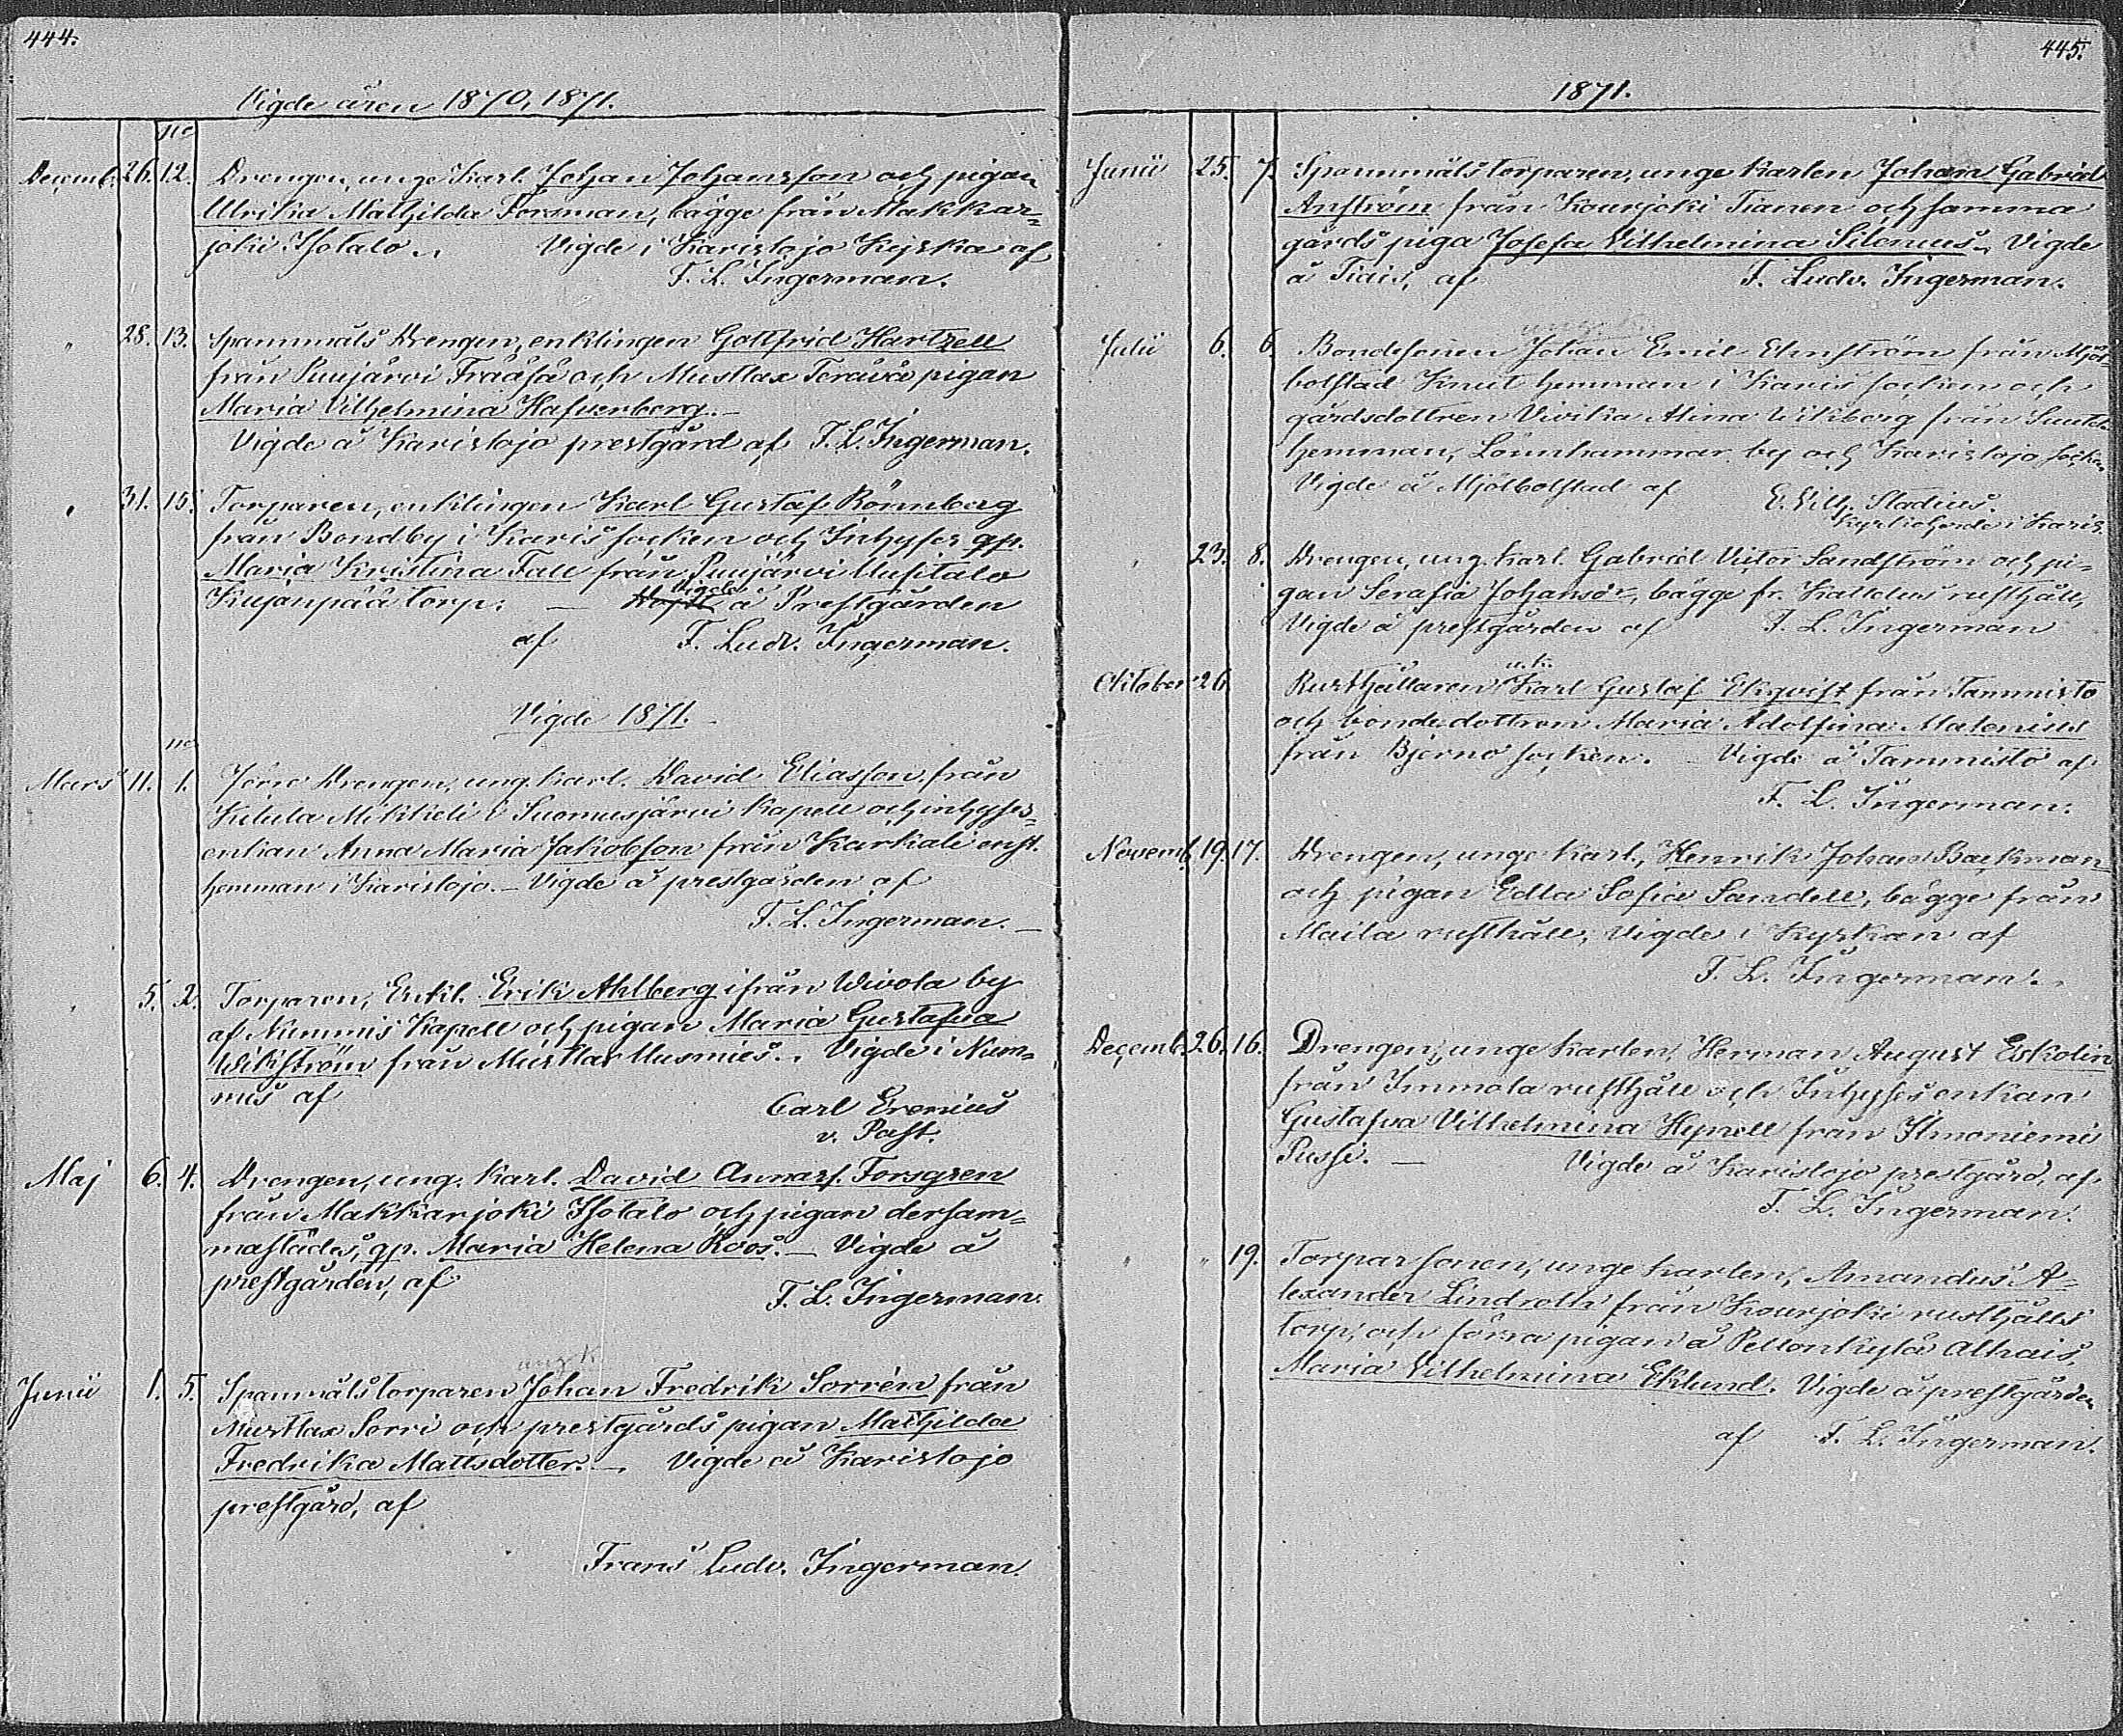 444.
Vigde åren 1870, 1871.
no
Decemb. 26. 12. Drengen, unge Karl. Johan Johansson och pigan
Ulrika Mathilda Forsman, bägge från Makkar=
joki Isotalo. Vigde i Karislojo Kyrka af
F. L. Ingerman.
" 28. 13. Spanmåls Drengen, enklingen Gottfrid Hartzell
från Puujärvi Frååsa och Mustlax Terävä pigan
Maria Vilhelmina Hafverberg.
Vigde å Karislojo prestgård af F. L. Ingerman.
" 31. 15. Torparen, enklingen Karl Gustaf Rönnberg
från Bondby i Karis socken och Inhyses qp.
Maria Kristina Fall från Puujärvi Uusitalo
Kujanpää torp: — Vigde å Prestgården
af F. Ludv. Ingerman.
Vigde 1871.
no
Mars 11. 1. Förre Drengen, ung. karl. David Eliasson från
Kitula Mikkeli i Suomusjärvi Kapell och inhyses=
enkan Anna Maria Jakobson från Karkali enst.
hemman i Karislojo. — Vigde å prestgården af
F. L. Ingerman. —
" 5. 2. Torparen, Enkl. Erik Ahlberg ifrån Wivola by
af Nummis Kapell och pigan Maria Gustafva
Wikström från Mustlax Uusmies. Vigde i Num=
mis af
Carl Erenius
v. Past.
Maj 6. 4. Drengen, ung. Karl. David Annarf. Forsgren
från Makkarjoki Isotalo och pigan dersam=
mastädes, qp. Maria Helena Roos. — Vigde å
prestgården, af
F. L. Ingerman.
ung k
Junii 1. 5. Spanmåls torparen Johan Fredrik Sorrén från
Mustlax Sorri och prestgårds pigan Mathilda
Fredrika Mattsdotter. — Vigde å Karislojo
prestgård, af
Frans Ludv. Ingerman.
445.
1871.
Junii 25. 7. Spanmåls torparen, unge karlen Johan Gabriel
Anström från Kourjoki Tianen och samma
gårds piga Josefa Vilhelmina Silenius. Vigde
å Tiais, af F. Ludv. Ingerman.
ung. k.
Julii 6. 6. Bondesonen Johan Emil Elmström från Mjöl
bolstad Knut hemman i Karis socken och
gårdsdottren Vivika Alina Wikberg från
hemman, Lönnhammar by och Karislojo socken
Vigde å Mjölbolstad af E. Vilh. Stadius.
Kyrkoherde i Karis.
" 23. 8. Drengen, ung. karl. Gabriel Victor Sandström och pi=
gan Serafia Johansdr, bägge fr. Kattelus rusthåll,
Vigde å prestgården af F. L. Ingerman
u. k.
Oktober 26 Rusthållaren Karl Gustaf Ekqvist från Tammisto
och bondedottren Maria Adolfina Malenius
från Bjerno socken. — Vigde å Tammisto af
F. L. Ingerman.
Novemb. 19. 17. Drengen, unge karl., Henrik Johan Backman
och pigan Edla Sofia Sandell, bägge från
Maila rusthåll, Vigde i Kyrkan af
F. L. Ingerman.
Decemb. 26. 16. Drengen, unge karlen, Herman August Eskolin
från Immola rusthåll och Inhyses enkan
Gustafva Vilhelmina Hynell från Ilmoniemi
Pussi. — Vigde å Karislojo prestgård, af
F. L. Ingerman.
" " 19. Torparsonen, unge karlen, Amandus A=
lexander Lindroth från Kourjoki rusthålls
torp, och förra pigan å Pellonkylä Alhais,
Maria Vilhelmina Eklund. Vigde å prestgården
af F. L. Ingerman.